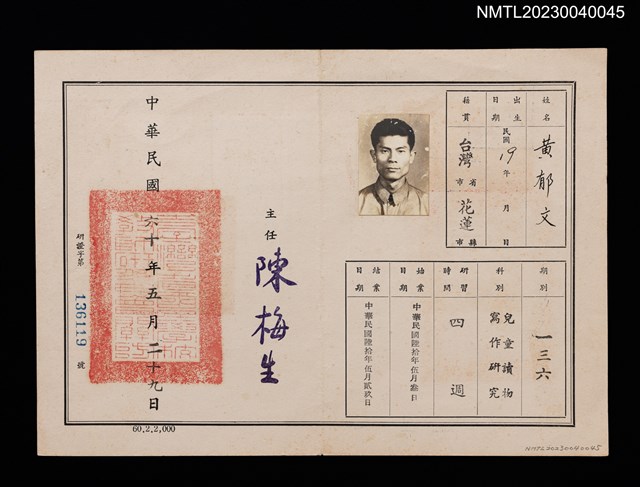 NMTL20230040045
姓名 黃郁文
出生日期 民國19年 月 日
籍貫 台灣省市 花蓮縣市
期別 一三六
科別 兒童讀物寫作研究
研習時間 四週
始業日期 中華民國陸拾年伍月叁日
結業日期 中華民國陸拾年伍月貳玖日
主任 陳梅生
中華民國六十年五月二十九日
研證字第136119號
60,2,2,000
NMTL20230040045